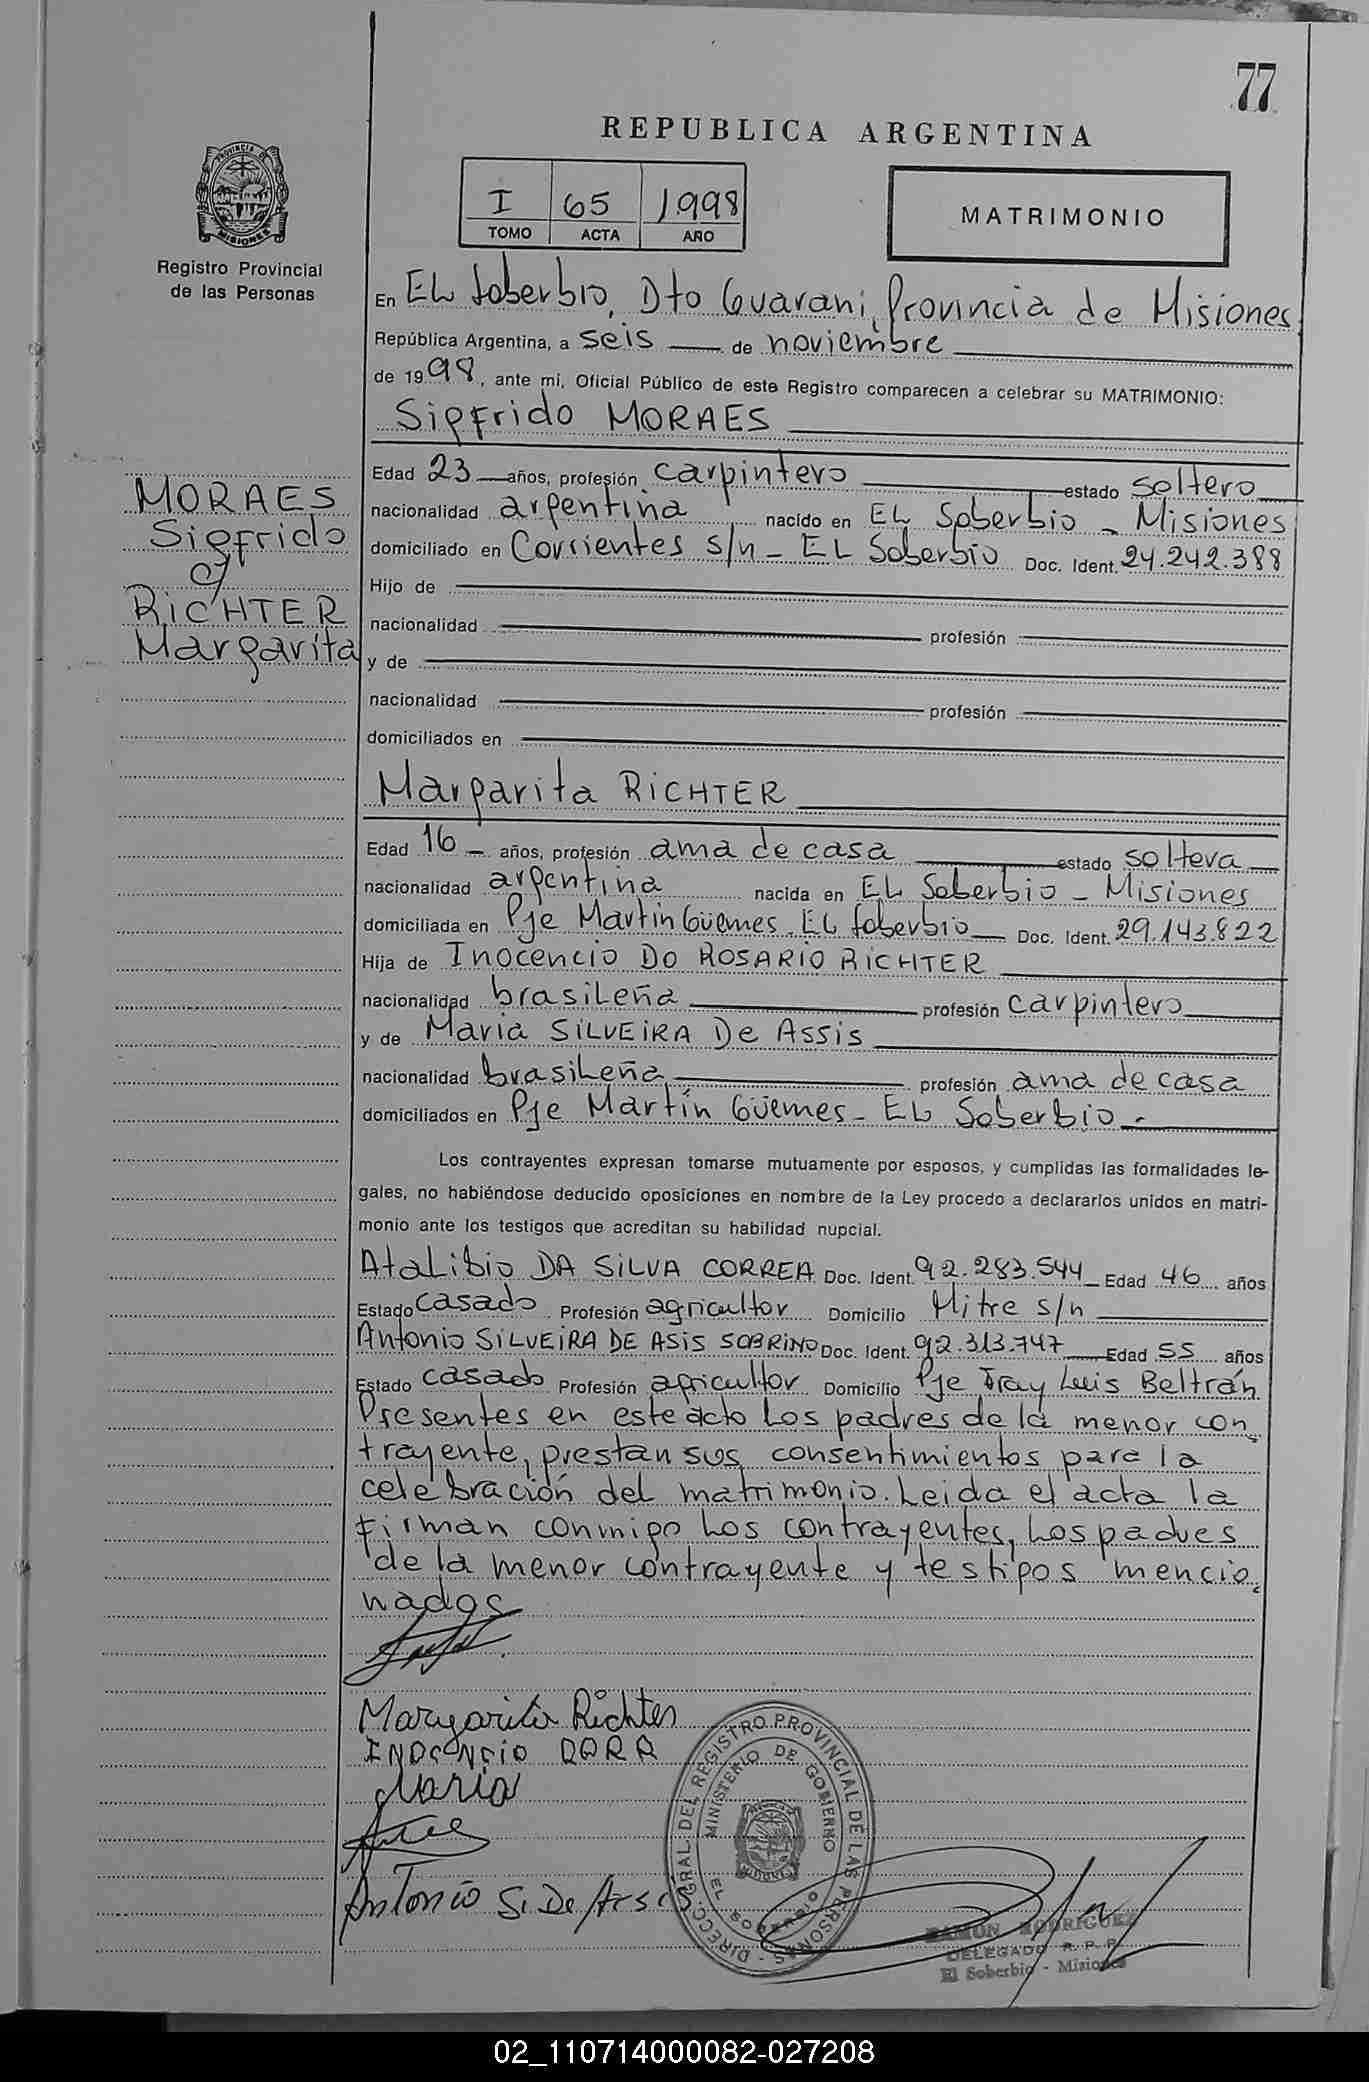 77
REPUBLICA ARGENTINA
PROVINCIA DE
MISIONES
Registro Provincial
de las Personas
I 65 1998
TOMO ACTA AÑO
MATRIMONIO
En EL Soberbio, Dto Guarani, Provincia de Misiones
República Argentina, a seis de noviembre
de 1998, ante mí, Oficial Público de este Registro comparecen a celebrar su MATRIMONIO:
Sigfrido MORAES
Edad 23 años, profesión carpintero estado soltero
nacionalidad argentina nacido en EL Soberbio - Misiones
domiciliado en Corrientes s/n - EL Soberbio Doc. Ident. 24.242.388
Hijo de
nacionalidad profesión
y de
nacionalidad profesión
domiciliados en
MORAES
Sigfrido
c/
RICHTER
Margarita
Margarita RICHTER
Edad 16 - años, profesión ama de casa estado soltera
nacionalidad argentina nacida en EL Soberbio - Misiones
domiciliada en Pje Martin Güemes - EL Soberbio Doc. Ident. 29.143.822
Hija de Inocencio DO ROSARIO RICHTER
nacionalidad brasileña profesión carpintero
y de Maria SILVEIRA De ASSIS
nacionalidad brasileña profesión ama de casa
domiciliados en Pje Martín Güemes - EL Soberbio -
Los contrayentes expresan tomarse mutuamente por esposos, y cumplidas las formalidades le-
gales, no habiéndose deducido oposiciones en nombre de la Ley procedo a declararlos unidos en matri-
monio ante los testigos que acreditan su habilidad nupcial.
Atalibio DA SILVA CORREA Doc. Ident. 92.283.544 Edad 46 años
Estado casado Profesión agricultor Domicilio Mitre s/n
Antonio SILVEIRA DE ASIS SOBRINO Doc. Ident. 92.313.747 Edad 55 años
Estado casado Profesión agricultor Domicilio Pje Fray Luis Beltrán
Presentes en este acto los padres de la menor con
trayente, prestan sus consentimientos para la
celebración del matrimonio. Leida el acta la
firman conmigo los contrayentes, los padres
de la menor contrayente y testigos mencio
nados
Margarita Richter
INOCENCIO DORR
Maria
Antonio S. De Assis
DIRECC. GRAL. DEL REGISTRO PROVINCIAL DE LAS PERSONAS
MINISTERIO DE GOBIERNO
EL SOBERBIO
RAMON RODRIGUEZ
DELEGADO R. P. P.
El Soberbio - Misiones
02_110714000082-027208